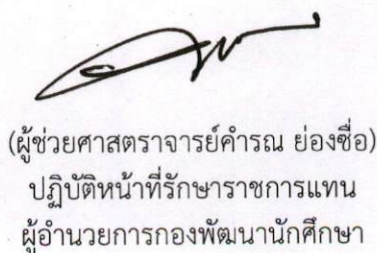 (ผู้ช่วยศาสตราจารย์คำรณ ย่องซื่อ)
ปฏิบัติหน้าที่รักษาราชการแทน
ผู้อำนวยการกองพัฒนานักศึกษา